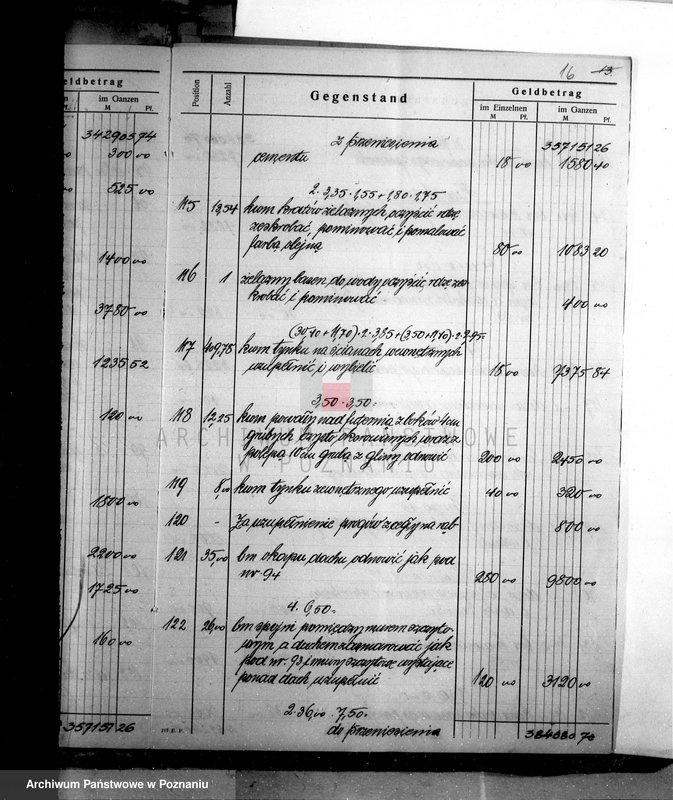 16 13.
Geldbetrag
im Ganzen
M Pf.
34290574
300 00
525 00
1400 00
3780 00
1235 52
120 00
1800 00
2200 00
1725 00
160 00
35715126
Position Anzahl Gegenstand Geldbetrag
im Einzelnen im Ganzen
M Pf. M Pf.
z przeniesienia 35715126
cementu 18 00 1580 40
2. 3,35 · 1,55 + 1,80 · 1,75
115 13,54 kwm kratów żelaznych oczyścić rdzę
zeskrobać, pominować i pomalować
farbą olejną 80 00 1083 20
116 1 żelazny basen do wody oczyścić rdzę zes-
krobać i pominować 400 00
(30,40 + 11,70) · 2 · 3,85 + (3,50 + 9,40) · 2 · 2,95 =
117 409,78 kwm tynku na ścianach wewnętrznych
uzupełnić i wybielić 18 00 7375 84
3,50 · 3,50 =
118 12,25 kwm powały nad
grubych
polepą 10 cm grubą z gliny odnowić 200 00 2450 00
119 8,00 kwm tynku zewnętrznego uzupełnić 40 00 320 00
120 - Za uzupełnienie progów z cegły na rąb- 800 00
121 35,00 bm okapu dachu odnowić jak pod
nr. 94 280 00 9800 00
4. 6,50 =
122 26,00 bm spojni pomiędzy murem szczyto-
wym, a dachem zamurować jak
pod nr. 93 i mury szczytowe wystające
ponad dach uzupełnić 120 00 3120 00
2. 36,00 · 7,50 =
do przeniesienia 384080 70
ARCHIWUM PAŃSTWOWE
W POZNANIU
Archiwum Państwowe w Poznaniu